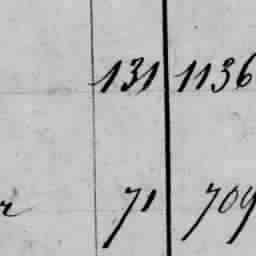 131 1136
r 71 709